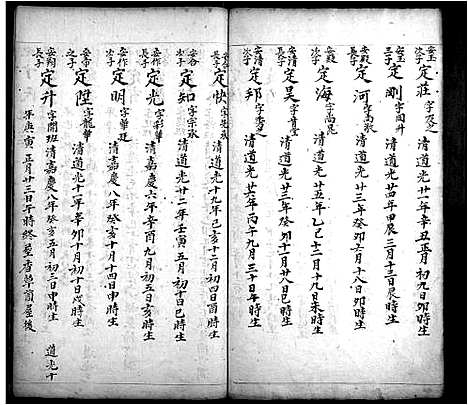 安玉次子 定莊 字 清道光廿一年辛丑正月初九日卯時生
定剛 字 清道光廿四年甲辰三月十三日辰時生
安殿長子 定河 字高 清道光廿三年癸卯六月十八日卯時生
安殿次子 定海 字尚 清道光廿五年乙巳十二月十九日未時生
安清長子 定昊 字 清道光廿三年癸卯十一月廿八日巳時生
安清次子 定邦 字 清道光廿六年丙午九月三十日午時生
定快 字 清道光十九年己亥十二月初四日酉時生
安各次子 定知 字宗承 清道光廿二年壬寅五月初十日巳時生
安作長子 定光 字 清嘉慶六年辛酉九月初五日亥時生
安作次子 定明 字華廷 清嘉慶八年癸亥十月十四日申時生
安命之子 定陞 字龍華 清道光十一年辛卯十月初十日戌時生
長子 定升 字開班 清嘉慶八年癸亥五月初三日申時生 道光十
年庚寅正月廿三日午時終 屋後